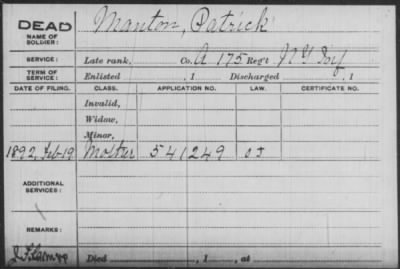 DEAD Manton, Patrick
NAME OF SOLDIER:
SERVICE: Late rank, Co. A 175 Reg't N.Y. Inf
TERM OF SERVICE: Enlisted , 1 Discharged , 1
DATE OF FILING. CLASS. APPLICATION NO. LAW. CERTIFICATE NO.
Invalid,
Widow,
Minor,
1892, Feb 19 Mother 541249
ADDITIONAL SERVICES:
REMARKS:
Died , 1 , at